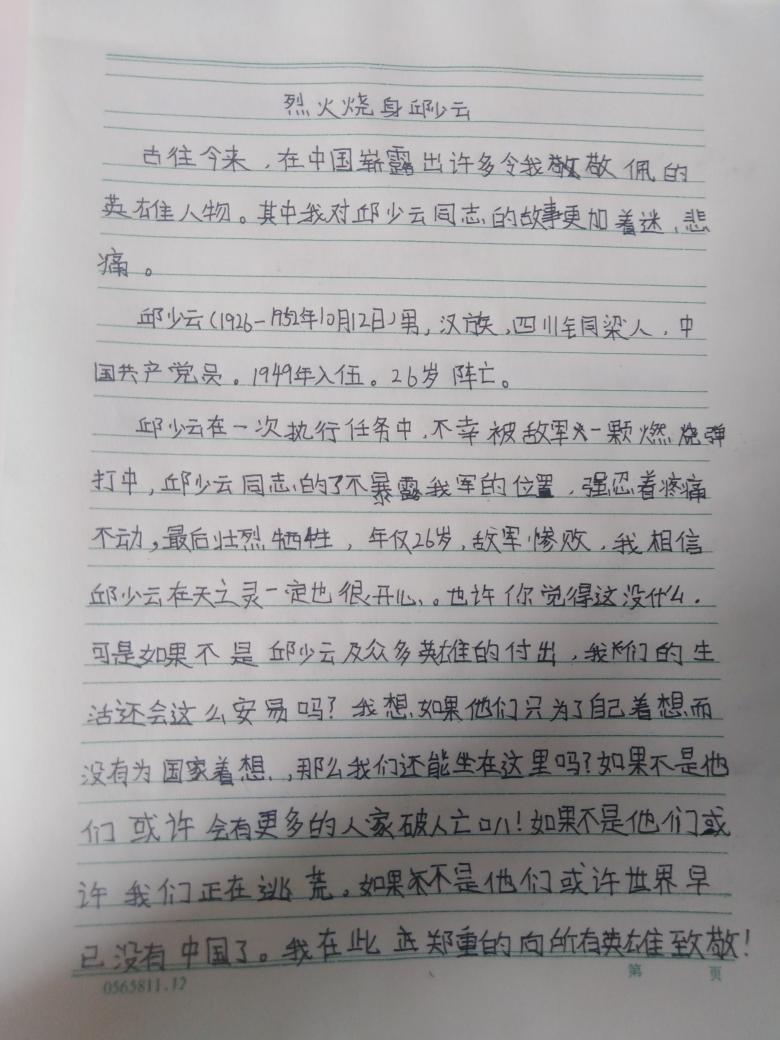 烈火烧身邱少云
古往今来，在中国崭露出许多令我敬佩的
英雄人物。其中我对邱少云同志的故事更加着迷，悲
痛。
邱少云(1926-1952年10月12日)男，汉族，四川铜梁人，中
国共产党员。1949年入伍。26岁阵亡。
邱少云在一次执行任务中，不幸被敌军一颗燃烧弹
打中，邱少云同志的了不暴露我军的位置，强忍着疼痛
不动，最后壮烈牺牲，年仅26岁，敌军惨败，我相信
邱少云在天之灵一定也很开心。也许你觉得这没什么．
可是如果不是邱少云及众多英雄的付出，我们的生
活还会这么安易吗？我想如果他们只为了自己着想而
没有为国家着想，那么我们还能坐在这里吗？如果不是他
们或许会有更多的人家破人亡叭！如果不是他们或
许我们正在逃荒。如果不是他们或许世界早
已没有中国了。我在此郑重的向所有英雄致敬！
0565811.12
第 页